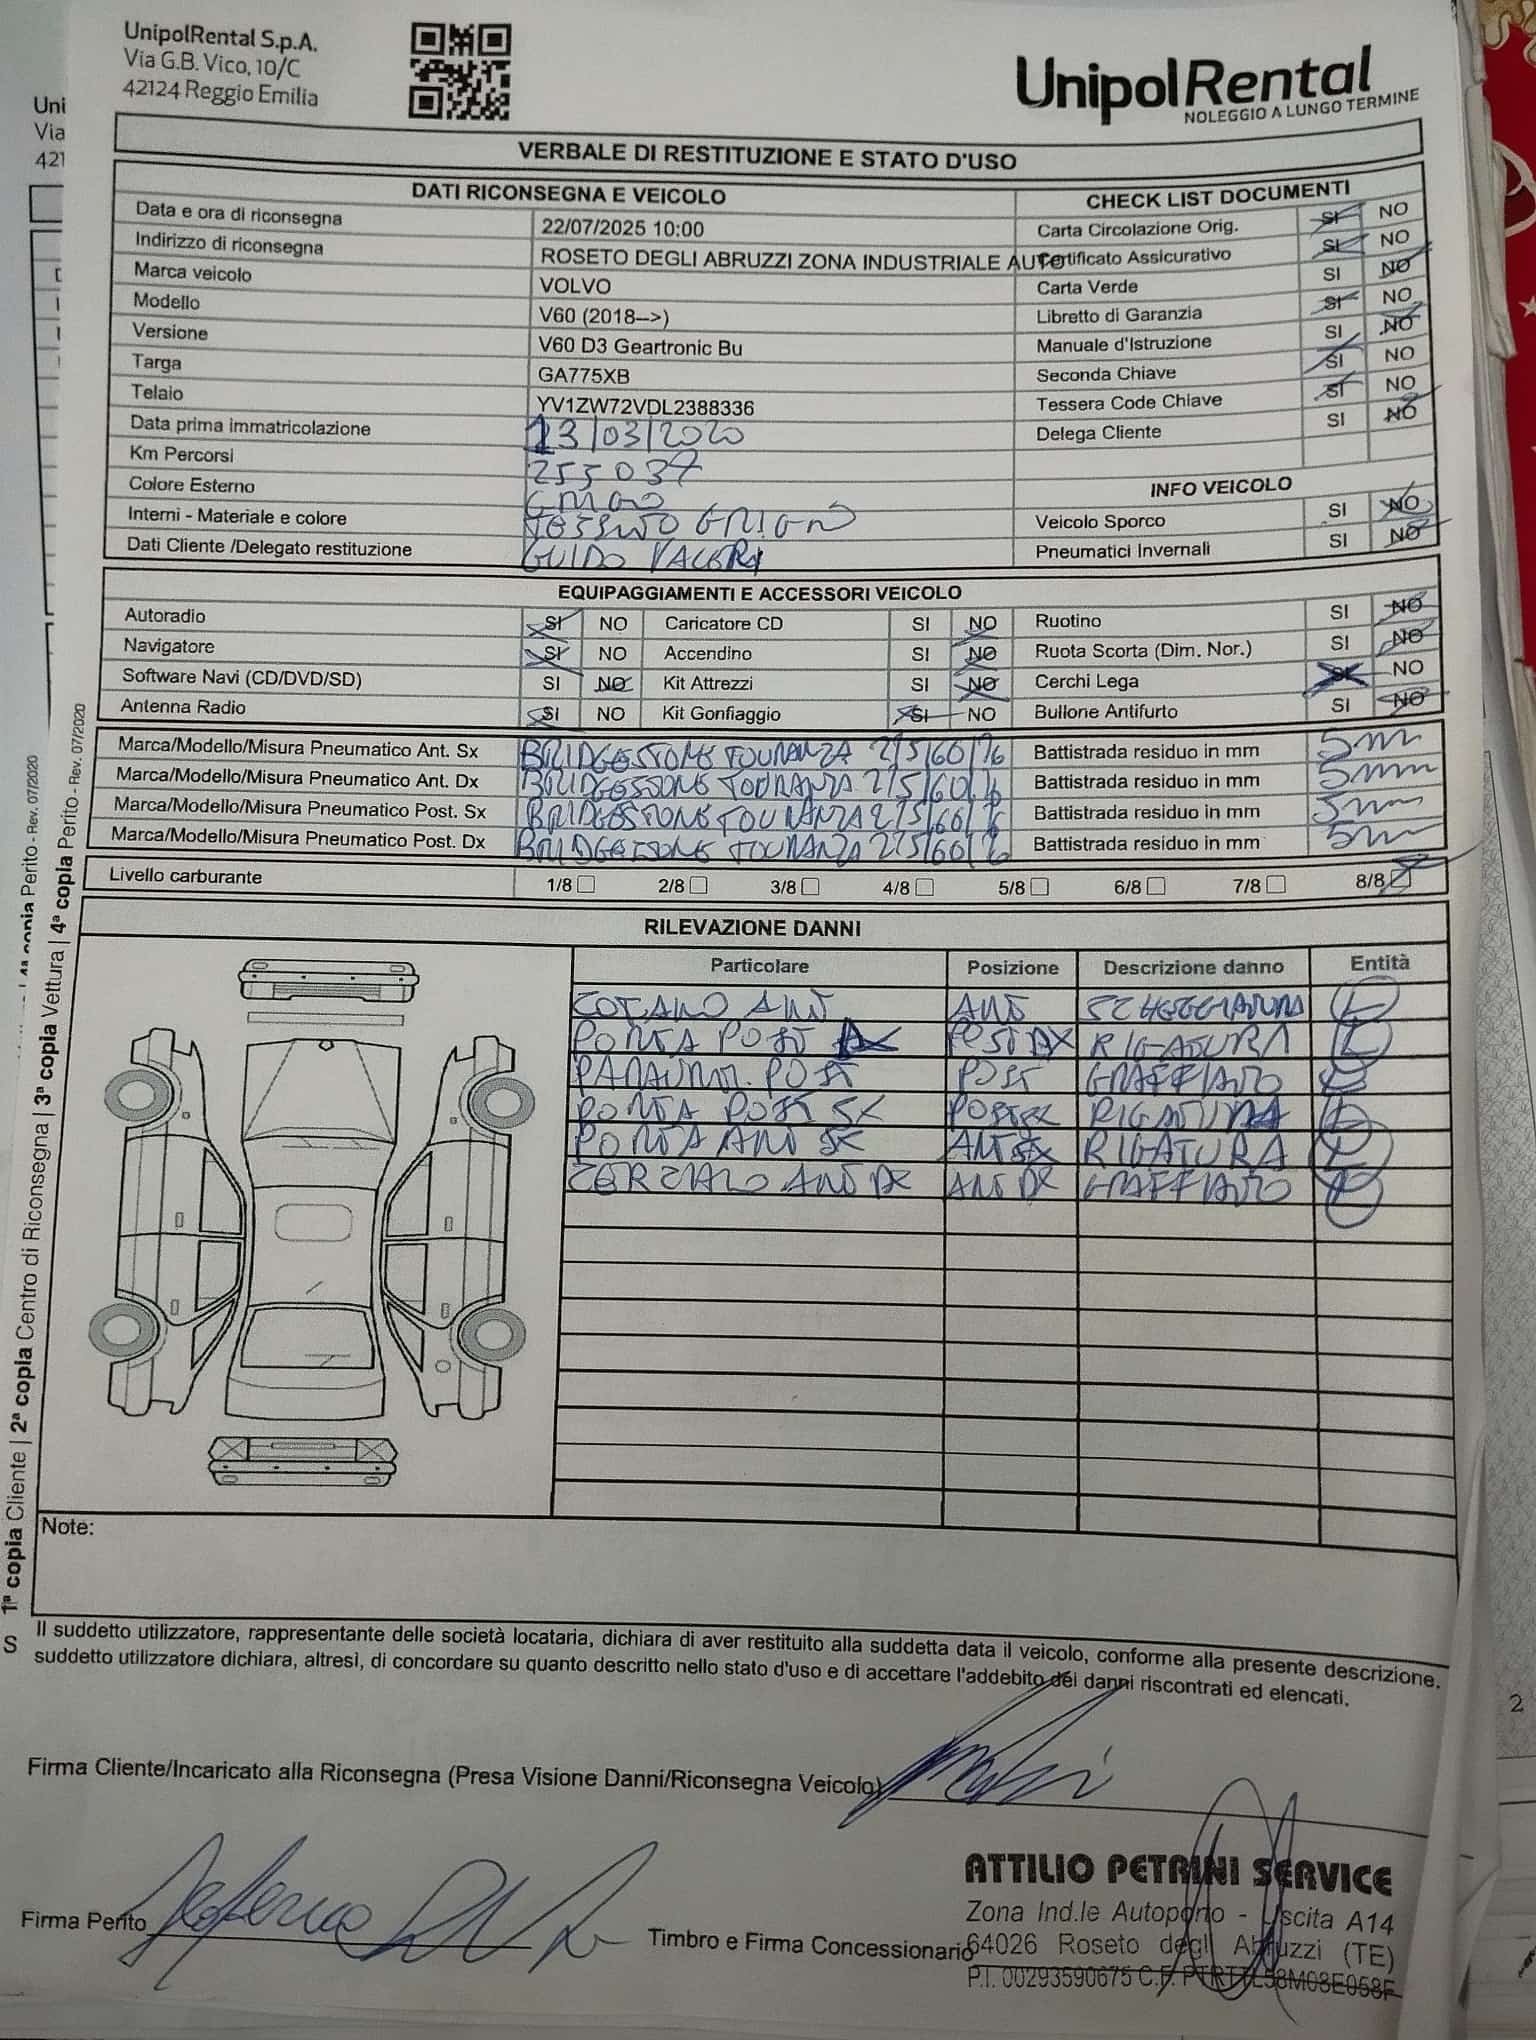 UnipolRental S.p.A.
Via G.B. Vico, 10/C
42124 Reggio Emilia
UnipolRental
NOLEGGIO A LUNGO TERMINE
Uni
Via
421
VERBALE DI RESTITUZIONE E STATO D'USO
DATI RICONSEGNA E VEICOLO
CHECK LIST DOCUMENTI
Data e ora di riconsegna 22/07/2025 10:00 Carta Circolazione Orig. SI NO
Indirizzo di riconsegna ROSETO DEGLI ABRUZZI ZONA INDUSTRIALE AUTO Certificato Assicurativo SI NO
Marca veicolo VOLVO Carta Verde SI NO
Modello V60 (2018-->) Libretto di Garanzia SI NO
Versione V60 D3 Geartronic Bu Manuale d'Istruzione SI NO
Targa GA775XB Seconda Chiave SI NO
Telaio YV1ZW72VDL2388336 Tessera Code Chiave SI NO
Data prima immatricolazione 13/03/2020 Delega Cliente SI NO
Km Percorsi 255037
Colore Esterno INFO VEICOLO
Interni - Materiale e colore TESSUTO GRIGIO Veicolo Sporco SI NO
Dati Cliente /Delegato restituzione GUIDO VALERI Pneumatici Invernali SI NO
EQUIPAGGIAMENTI E ACCESSORI VEICOLO
Autoradio SI NO Caricatore CD SI NO Ruotino SI NO
Navigatore SI NO Accendino SI NO Ruota Scorta (Dim. Nor.) SI NO
Software Navi (CD/DVD/SD) SI NO Kit Attrezzi SI NO Cerchi Lega SI NO
Antenna Radio SI NO Kit Gonfiaggio SI NO Bullone Antifurto SI NO
Marca/Modello/Misura Pneumatico Ant. Sx BRIDGESTONE TOURANZA 215/60/16 Battistrada residuo in mm 5mm
Marca/Modello/Misura Pneumatico Ant. Dx BRIDGESTONE TOURANZA 215/60/16 Battistrada residuo in mm 5mm
Marca/Modello/Misura Pneumatico Post. Sx BRIDGESTONE TOURANZA 215/60/16 Battistrada residuo in mm 5mm
Marca/Modello/Misura Pneumatico Post. Dx BRIDGESTONE TOURANZA 215/60/16 Battistrada residuo in mm 5mm
Livello carburante 1/8 2/8 3/8 4/8 5/8 6/8 7/8 8/8
RILEVAZIONE DANNI
Particolare Posizione Descrizione danno Entità
COFANO ANT ANT SCHEGGIATURA L
PORTA POST DX POST DX RIGATURA L
PARAURTI POST POST GRAFFIATO
PORTA POST SX POST SX RIGATURA
PORTA ANT SX ANT SX RIGATURA
CERCHIO ANT DX ANT DX GRAFFIATO
Note:
1ª copia Cliente | 2ª copia Centro di Riconsegna | 3ª copia Vettura | 4ª copia Perito - Rev. 07/2020
4ª copia Perito - Rev. 07/2020
S
Il suddetto utilizzatore, rappresentante delle società locataria, dichiara di aver restituito alla suddetta data il veicolo, conforme alla presente descrizione.
suddetto utilizzatore dichiara, altresì, di concordare su quanto descritto nello stato d'uso e di accettare l'addebito dei danni riscontrati ed elencati.
2
Firma Cliente/Incaricato alla Riconsegna (Presa Visione Danni/Riconsegna Veicolo)
Firma Perito
Timbro e Firma Concessionario
ATTILIO PETRINI SERVICE
Zona Ind.le Autoporto - Uscita A14
64026 Roseto degli Abruzzi (TE)
P.I. 00293590675 C.F. PTRTTL58M03E058F